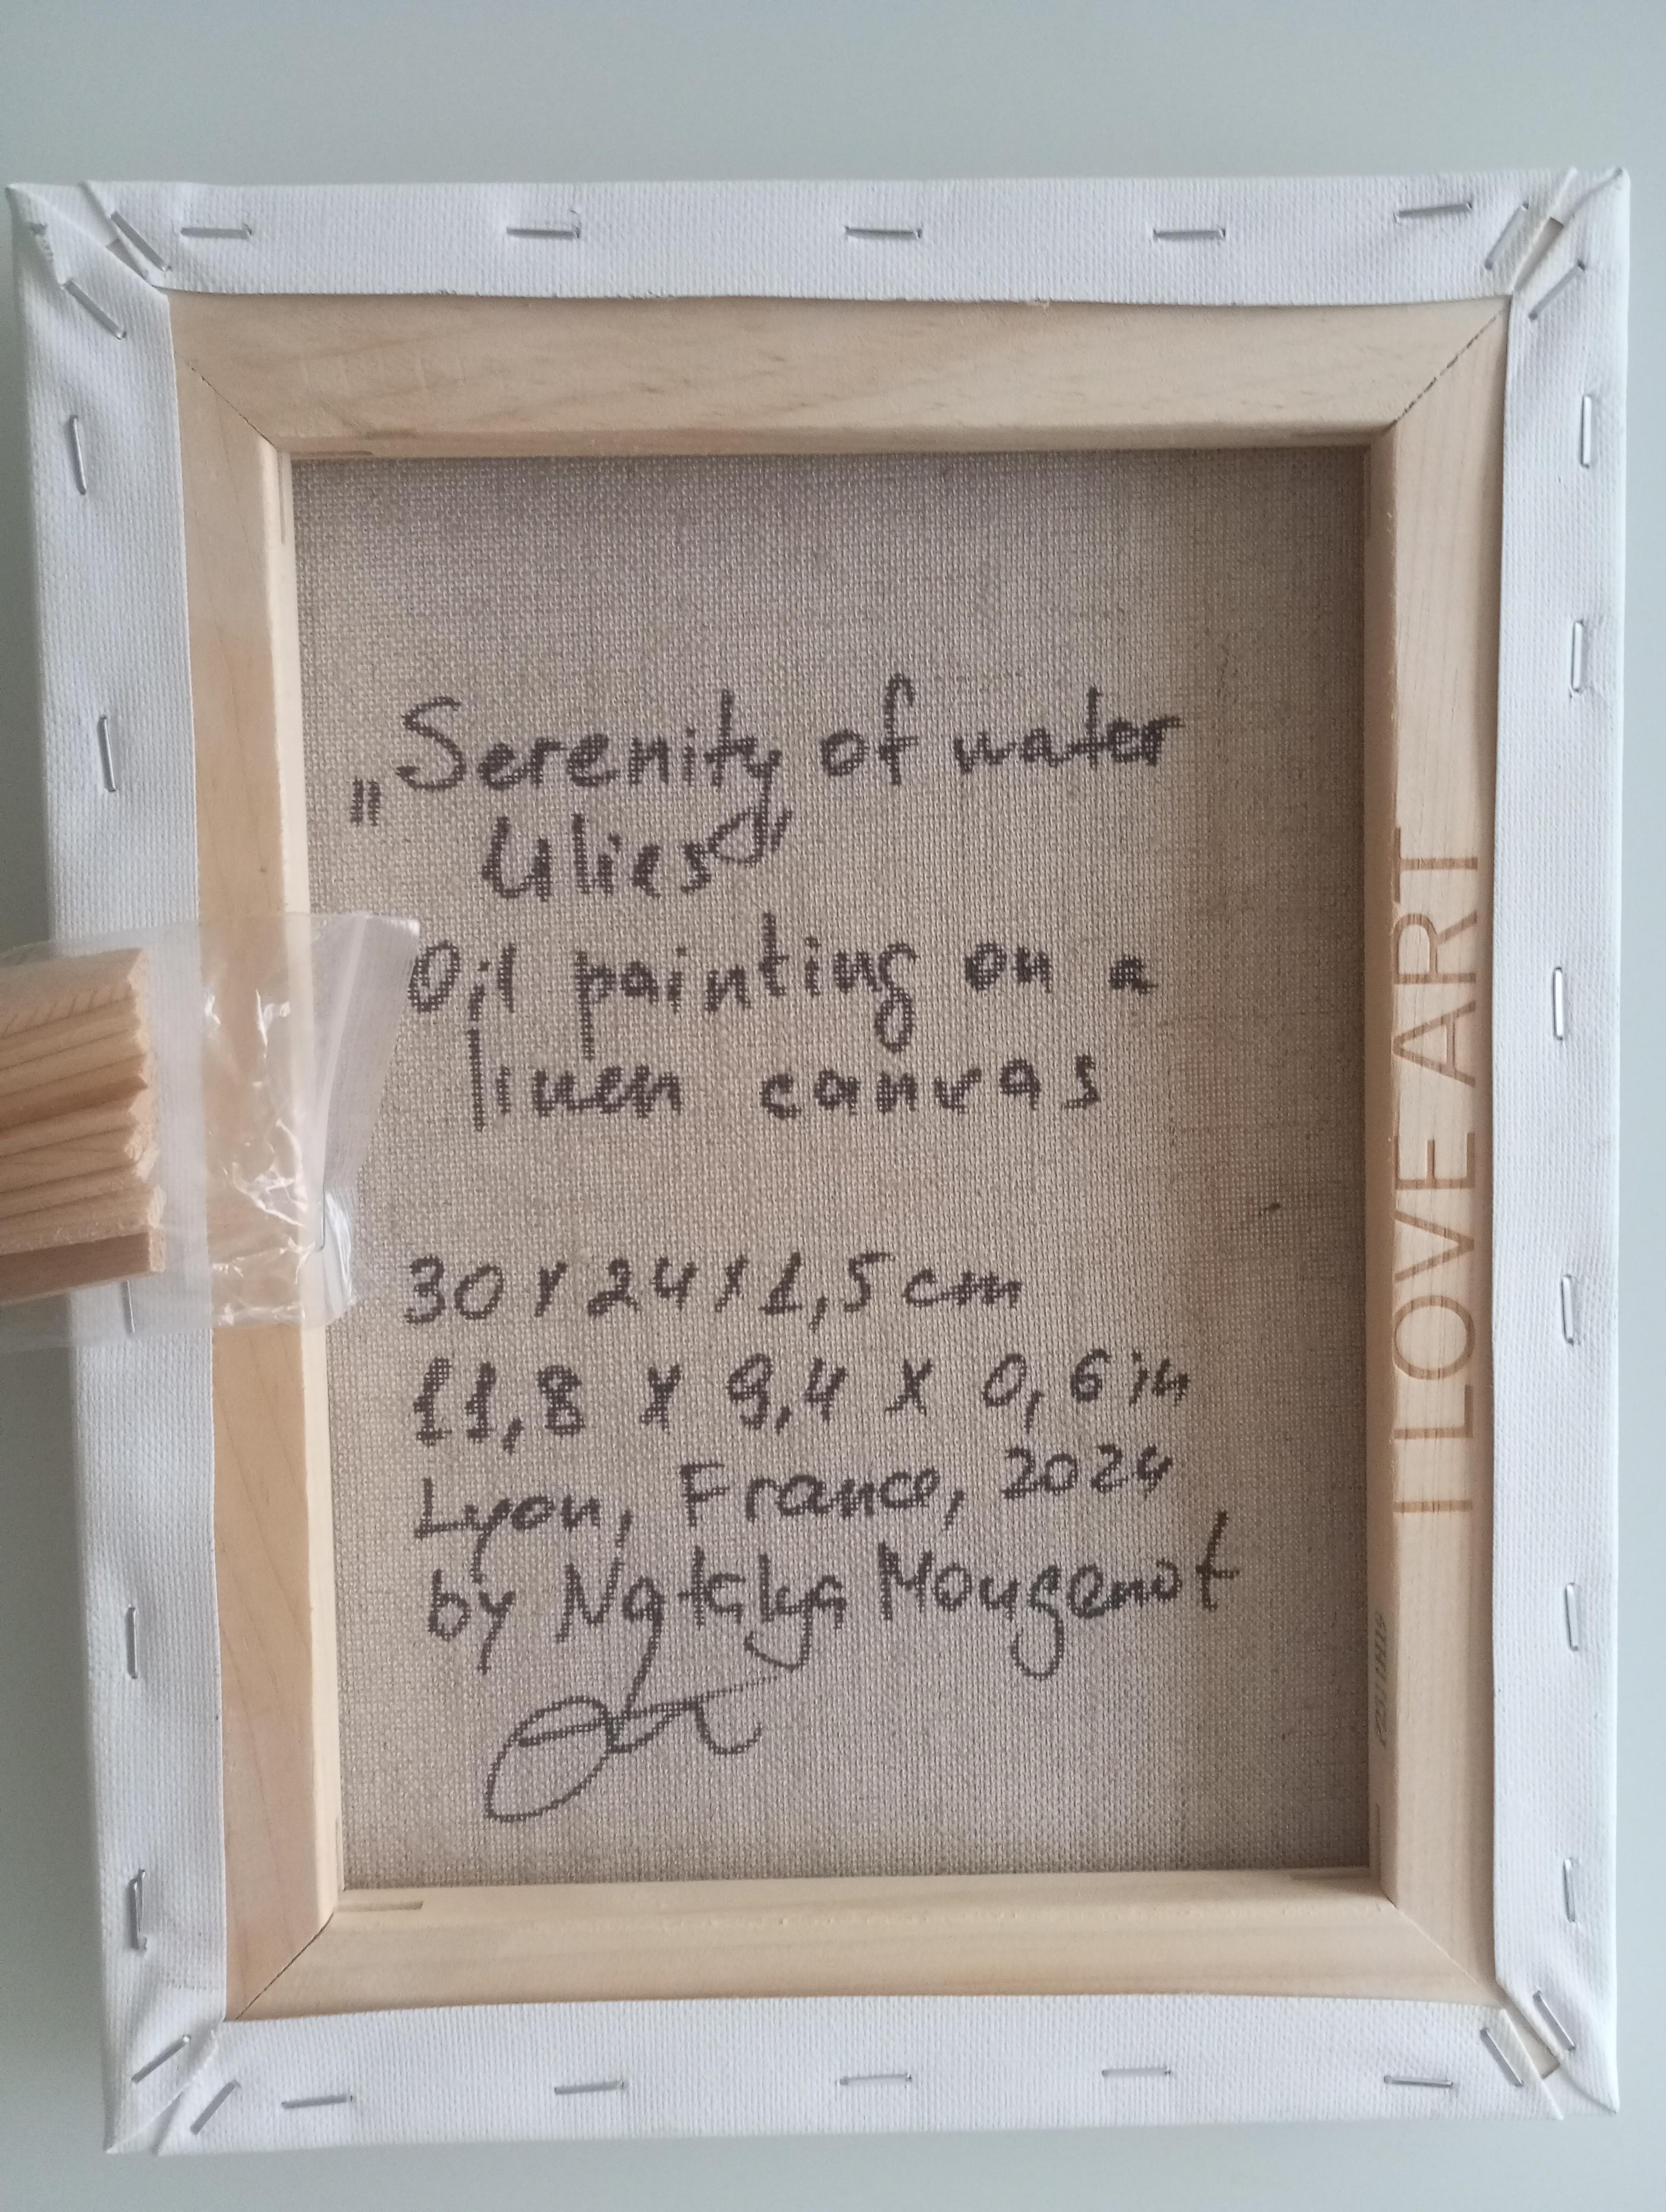 „Serenity of water
lilies"
Oil painting on a
linen canvas
30 x 24 x 1,5 cm
11,8 x 9,4 x 0,6 in
Lyon, France, 2024
by Natalya Mougenot
I LOVE ART